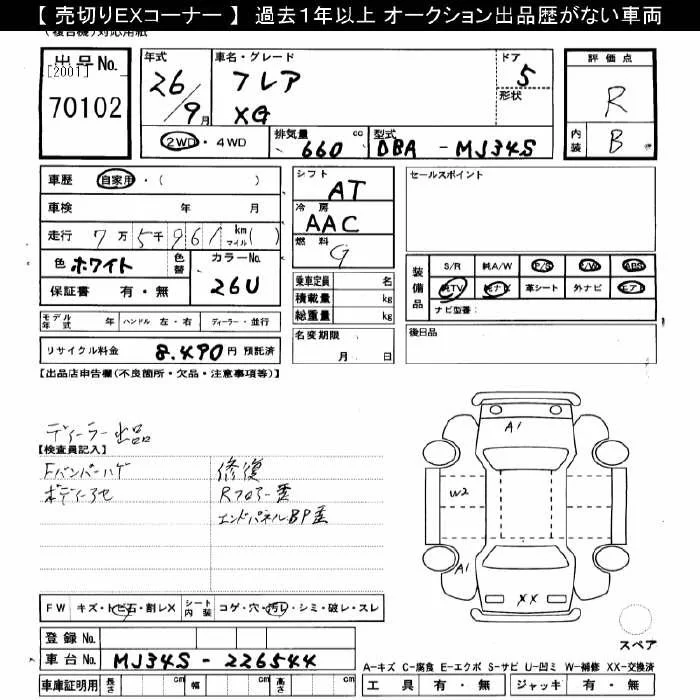 【 売切りEXコーナー 】 過去1年以上 オークション出品歴がない車両
出品No.
[2001]
70102
年式 26/9月
車名・グレード フレア XG
ドア 5
形状
2WD ・ 4WD
排気量 660 cc
型式 DBA - MJ34S
評価点 R
内装 B
車歴 自家用・( )
車検 年 月
走行 7万5千961 km マイル ( )
色 ホワイト 色替 カラーNo. 26U
保証書 有・無
モデル年式 年 ハンドル 左・右 ディーラー・並行
リサイクル料金 8,490円 預託済
シフト AT
冷房 AAC
燃料 G
乗車定員 名
積載量 kg
総重量 kg
名変期限 月 日
セールスポイント
装備品 S/R 純A/W P/S P/W ABS
純TV 純ナビ 革シート 外ナビ エアB
ナビ型番:
後日品
【出品店申告欄(不良箇所・欠品・注意事項等)】
ディーラー出品
【検査員記入】
Fバンパーハゲ
修復
Rフロアー歪
エンドパネルBP歪
A1
W2
A1
XX
スペア
FW キズ・トビ石・割レX シート内装 コゲ・穴・汚レ・シミ・破レ・スレ
登録No.
車台No. MJ34S - 226544
車庫証明用 長さ cm 幅 cm 高さ cm
A-キズ C-腐食 E-エクボ S-サビ U-凹ミ W-補修 XX-交換済
工具 有・無 ジャッキ 有・無